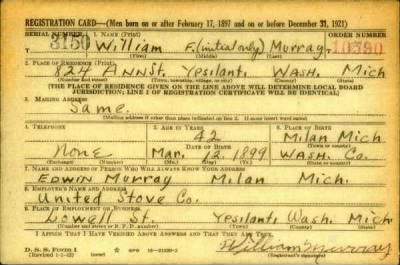 REGISTRATION CARD—(Men born on or after February 17, 1897 and on or before December 31, 1921)
SERIAL NUMBER 1. NAME (Print) ORDER NUMBER
3150 William F. (initial only) Murray 10390
(First) (Middle) (Last)
2. PLACE OF RESIDENCE (Print)
824 Ann St. Ypsilanti Wash. Mich
(Number and street) (Town, township, village, or city) (County) (State)
[THE PLACE OF RESIDENCE GIVEN ON THE LINE ABOVE WILL DETERMINE LOCAL BOARD
JURISDICTION; LINE 2 OF REGISTRATION CERTIFICATE WILL BE IDENTICAL]
3. MAILING ADDRESS
Same.
[Mailing address if other than place indicated on line 2. If same insert word same]
4. TELEPHONE 5. AGE IN YEARS 6. PLACE OF BIRTH
42 Milan Mich
DATE OF BIRTH (Town or county)
None Mar. 12. 1899 Wash. Co.
(Exchange) (Number) (Mo.) (Day) (Yr.) (State or country)
7. NAME AND ADDRESS OF PERSON WHO WILL ALWAYS KNOW YOUR ADDRESS
Edwin Murray Milan Mich.
8. EMPLOYER'S NAME AND ADDRESS
United Stove Co.
9. PLACE OF EMPLOYMENT OR BUSINESS
Lowell St. Ypsilanti Wash. Mich
(Number and street or R. F. D. number) (Town) (County) (State)
I AFFIRM THAT I HAVE VERIFIED ABOVE ANSWERS AND THAT THEY ARE TRUE.
D. S. S. Form 1
(Revised 1-1-42) (over)
William Murray
(Registrant's signature)